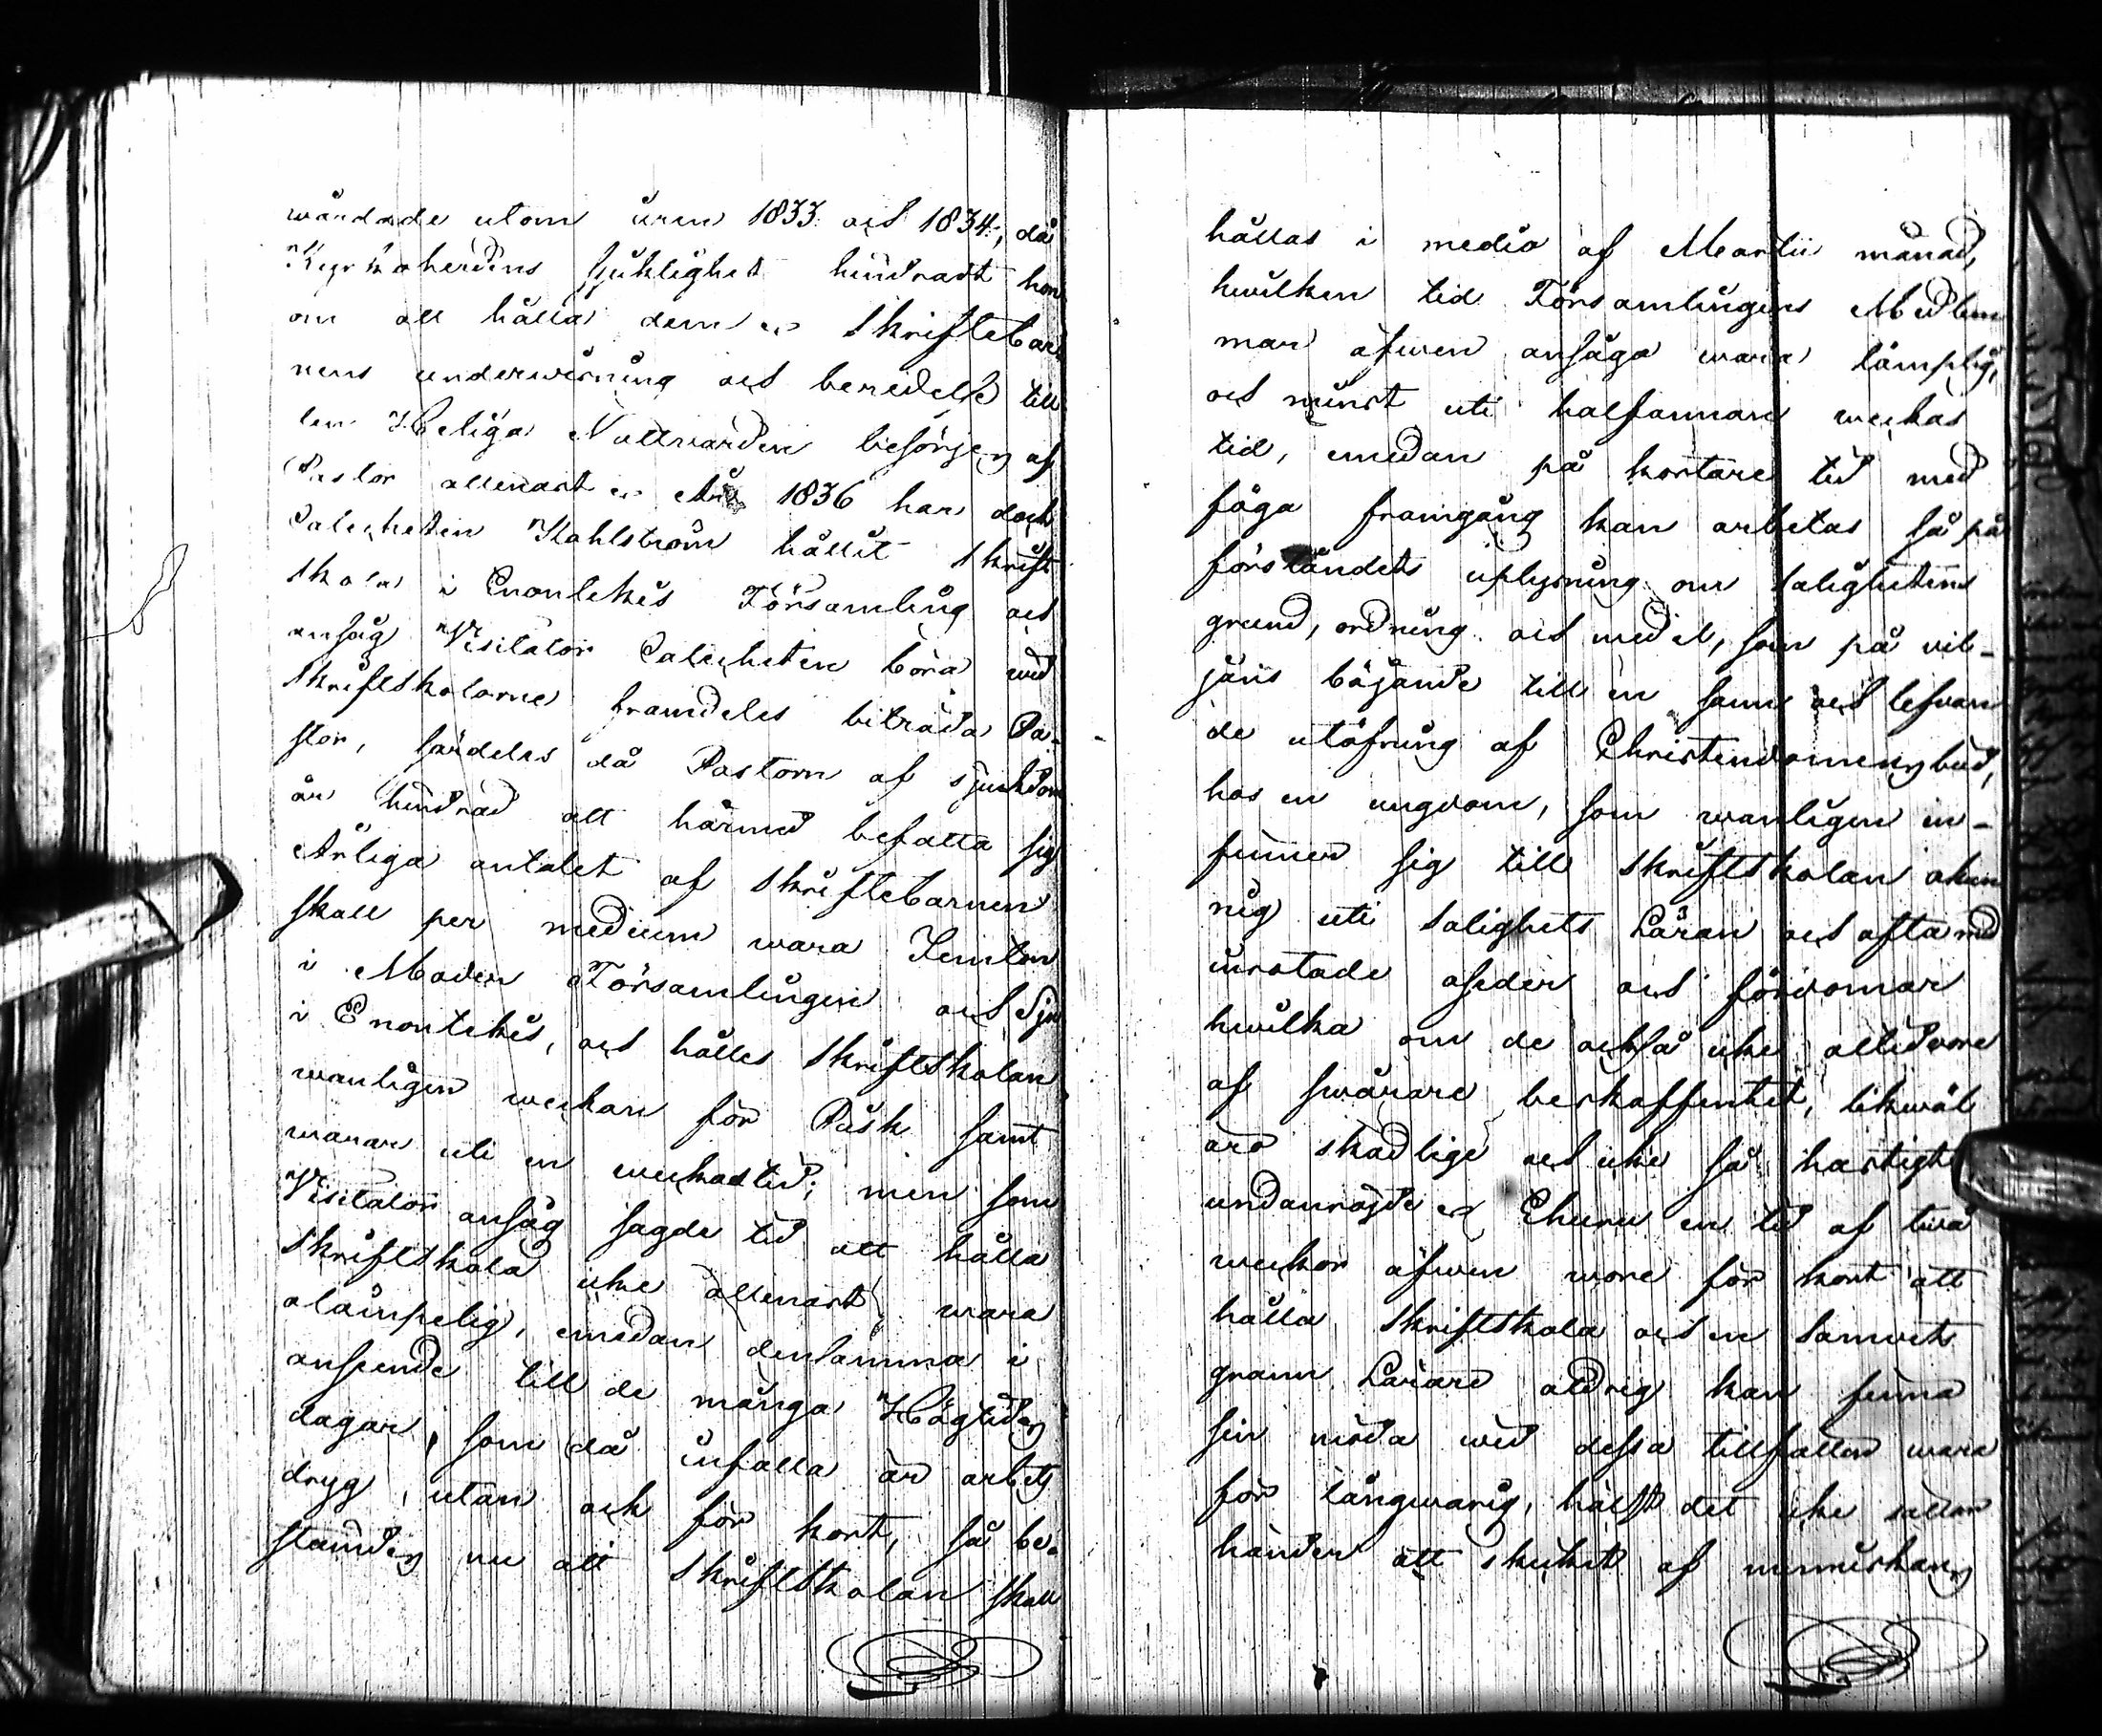 wårdade utom åren 1833 och 1834, då
Kyrkoherdens sjuklighet hindradt hon
om att hålla dem. Skriftebar
nens underwisning och beredelse till
den Heliga Nattvarden besörjes af
Pastor allenast. År 1836 har dock
Catecheten Stahlström hållit Skrift
skola i Enontekis Församling och
ansåg Visitator Catecheten böra wid
Skriftskolorne framdeles biträda Pa-
stor, särdeles då Pastorn af sjukdom
är hindrad att härmed befatta sig
Årliga antalet af Skriftebarnen
skall per medium wara Femton
i Moder Församlingen och Sju
i Enontekis, och hålles Skriftskolan
wanligen weckan för Påsk samt
warar uti en weckas tid; men som
Visitator ansåg sagde tid att hålla
Skriftskola icke allenast wara
olämpelig, emedan densamma i
anseende till de många Högtids
dagar, som då infalla är arbets
dryg, utan ock för kort, så be-
stämdes nu att Skriftskolan skall
hållas i medio af Martii månad,
hwilken tid Församlingens Medlem
mar äfwen ansågo wara lämplig,
och minst uti halfannan weckas
tid, emedan på kortare tid med
föga framgång kan arbetas så på
förståndets uplysning om salighetens
grund, ordning och medel, som på vil-
jans böjande till en sann och lefwan
de utöfning af Christendomens bud,
hos en ungdom, som wanligen in-
finner sig till Skriftskolan okun
nig uti Salighets Läran och ofta med
inrotade oseder och fördomar
hwilka om de också icke alltid wore
af swårare beskaffenhet, likwäl
äro skadlige och icke så hastigt
undanröjde. Ehuru en tid af twå
weckor äfwen wore för kort att
hålla Skriftskola och en samwets
grann Lärare aldrig kan finna
sin möda wid dessa tillfällen wara
för långwarig, hälst det icke sällan
händer att skicket af menniskans